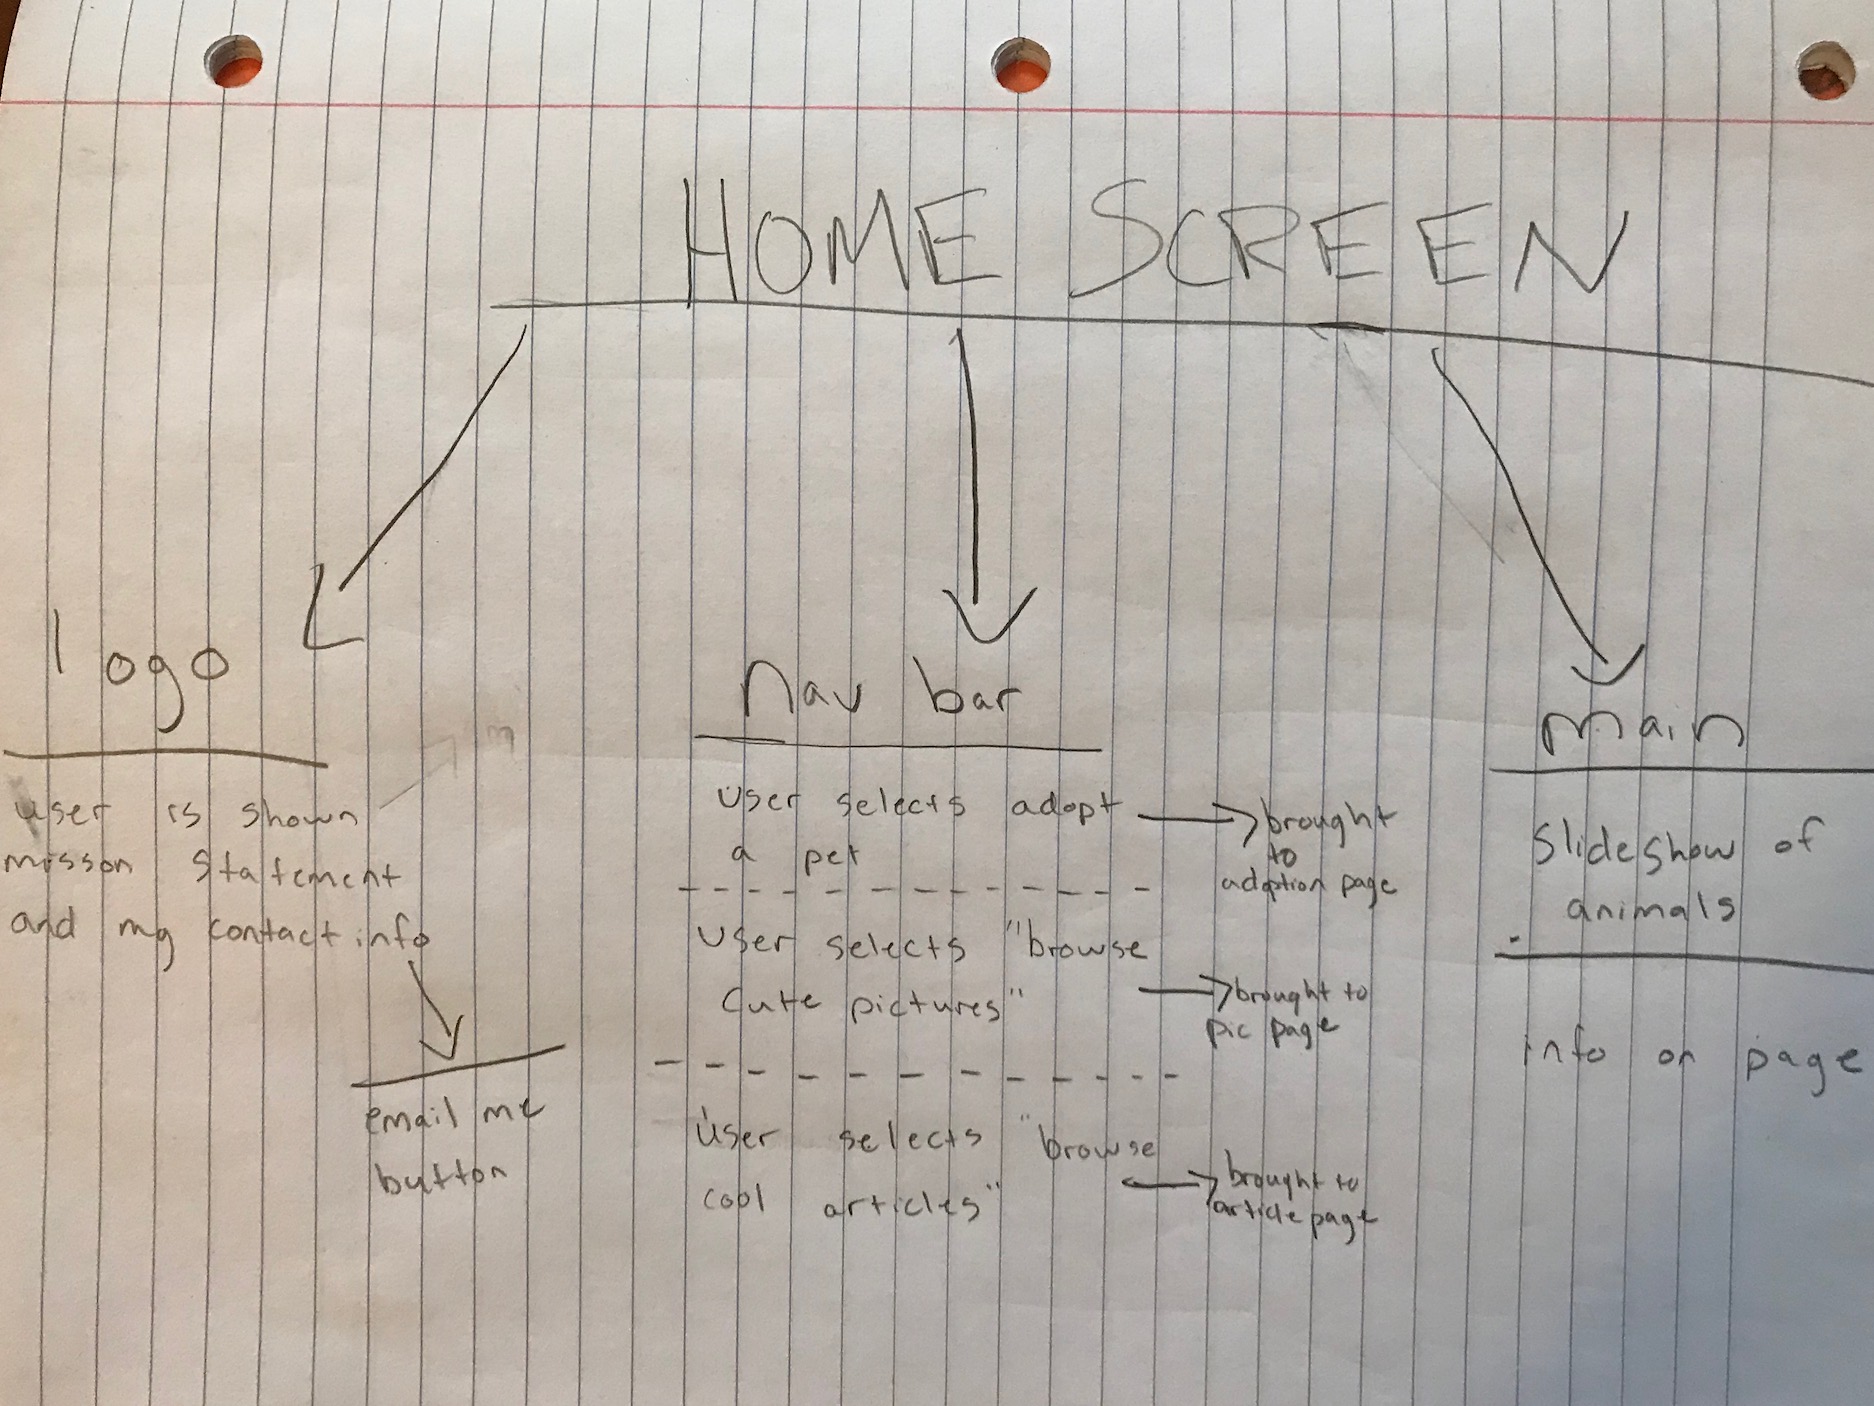 HOME SCREEN
logo
user is shown
misson statement
and my contact info
email me
button
nav bar
User selects adopt
a pet
brought
to
adoption page
User selects "browse
Cute pictures"
brought to
pic page
User selects "browse
cool articles"
brought to
article page
main
Slideshow of
animals
info on page